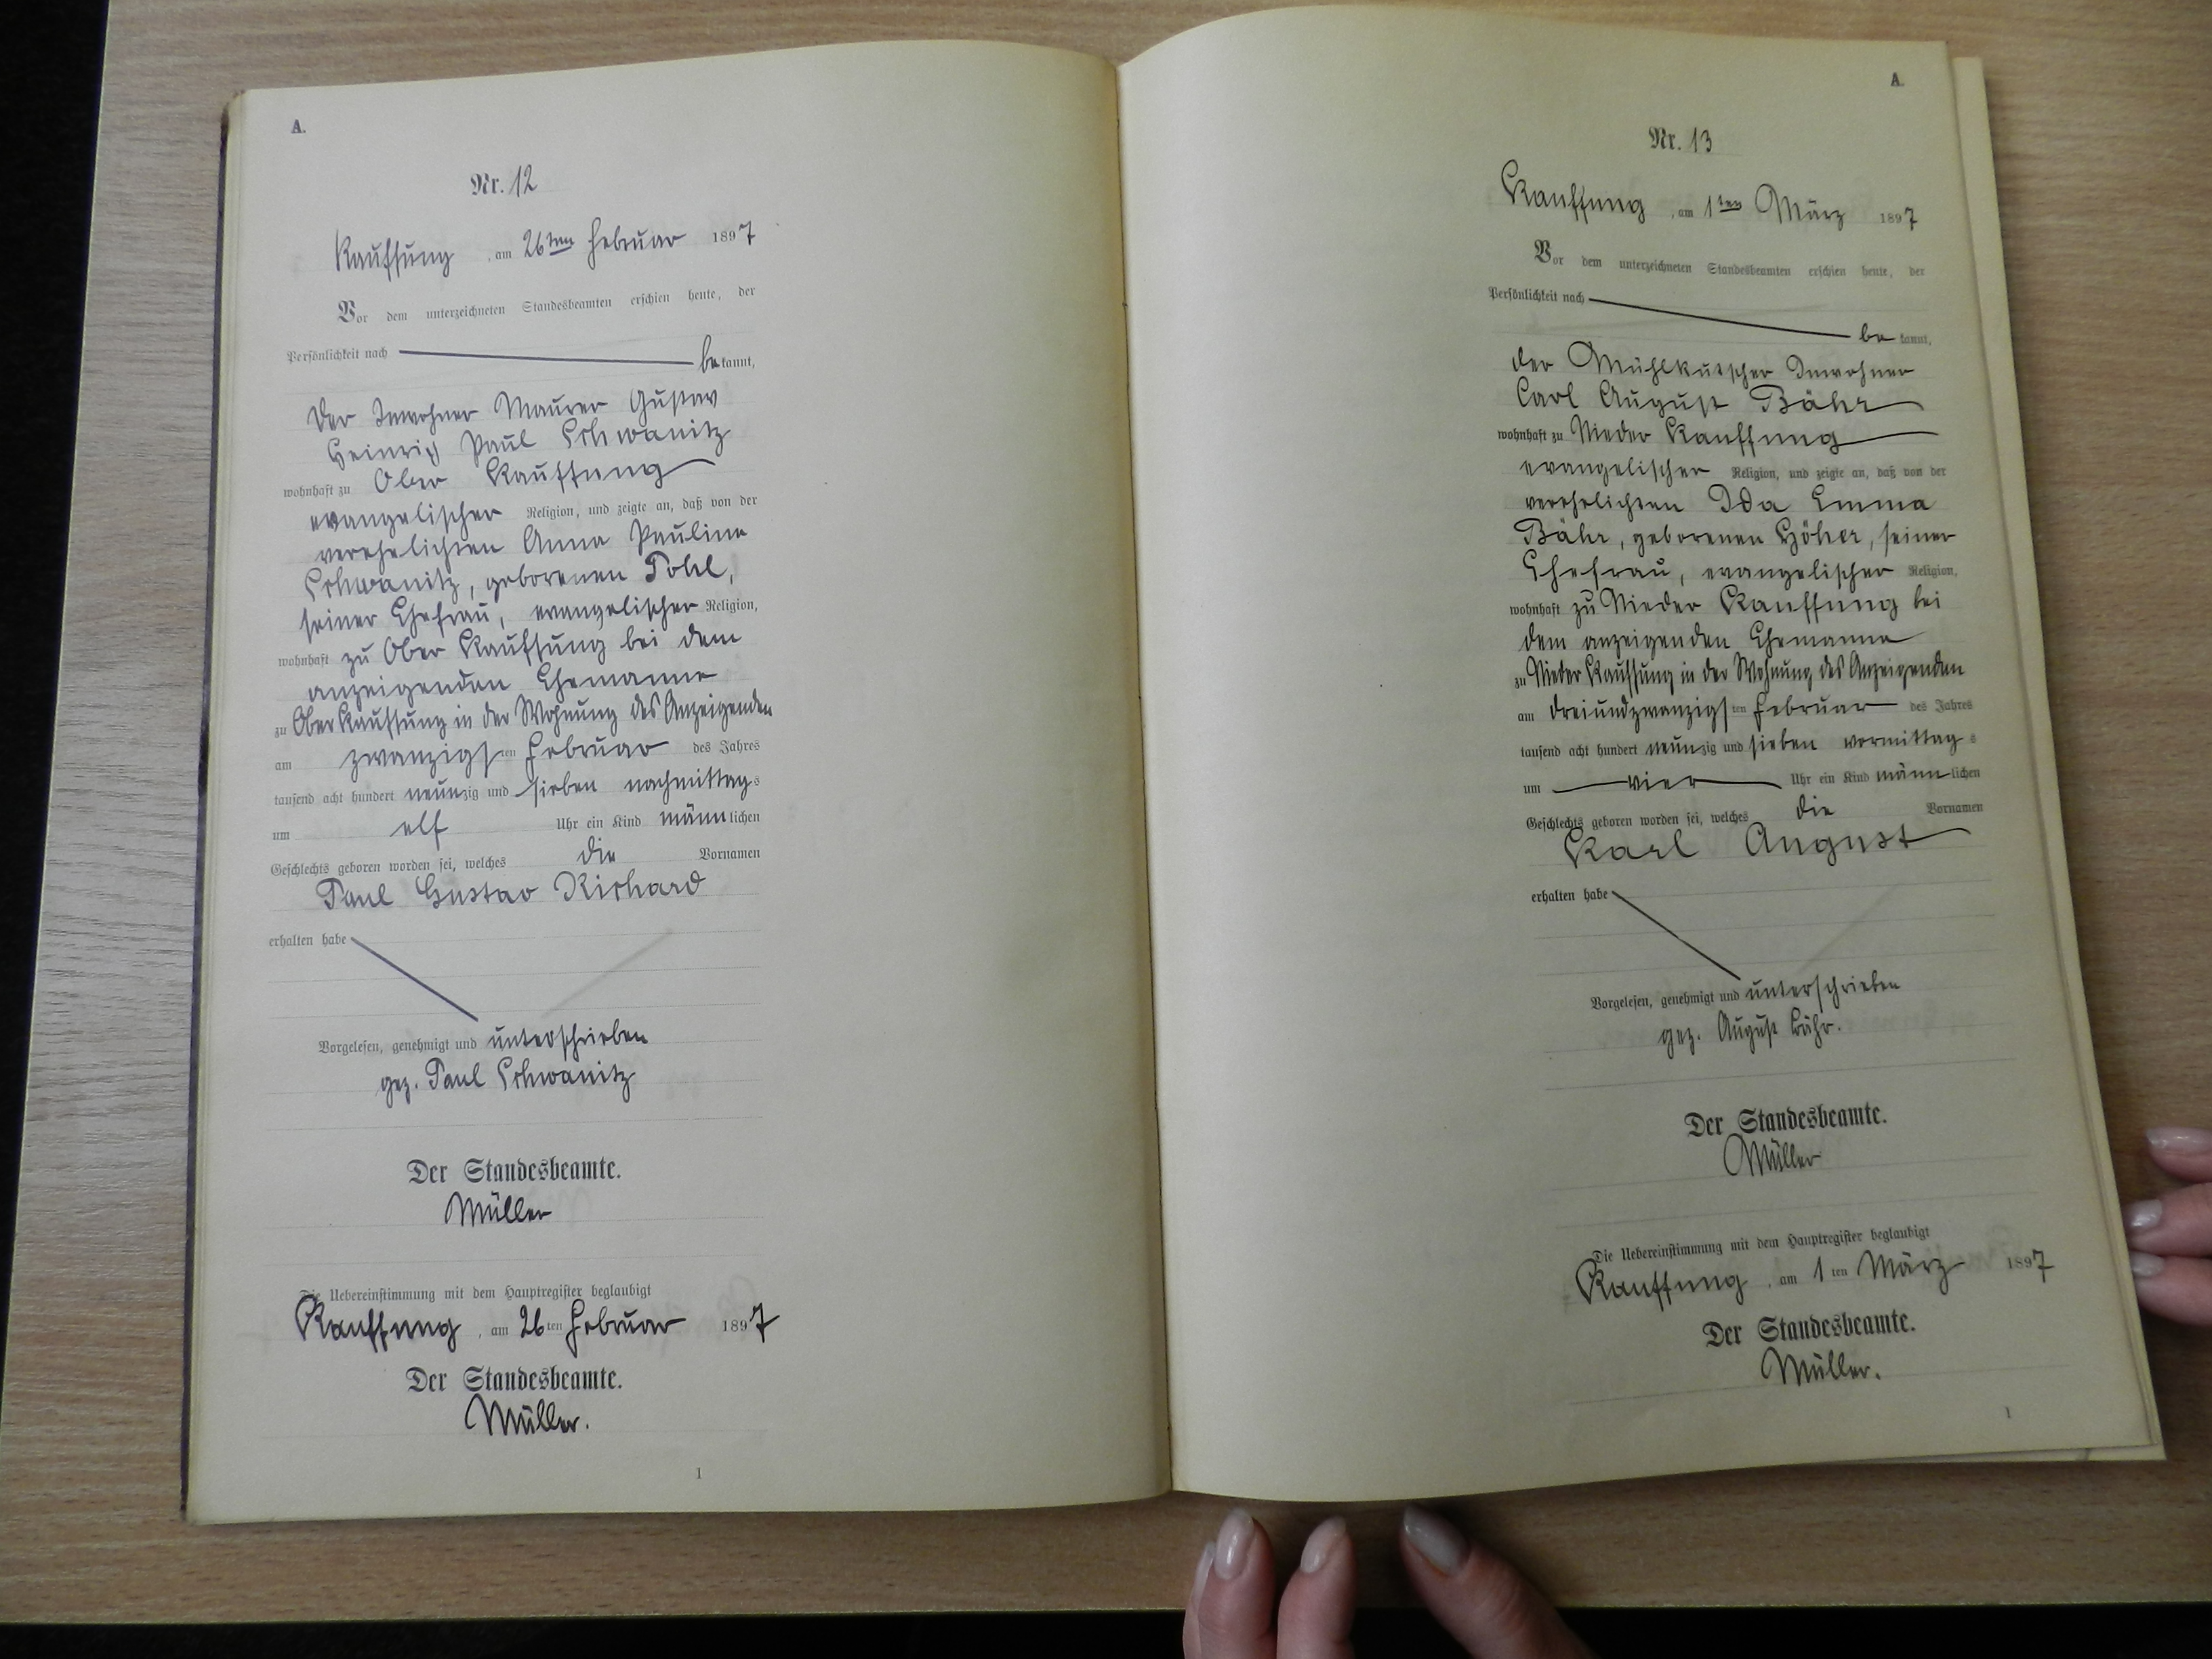 A.
Nr. 12
Kauffung, am 26ten Februar 1897
Vor dem unterzeichneten Standesbeamten erschien heute, der
Persönlichkeit nach
bekannt,
der Inwohner Maurer Gustav
Heinrich Paul Schwanitz
wohnhaft zu Ober Kauffung
evangelischer Religion, und zeigte an, daß von der
verehelichten Anna Pauline
Schwanitz, geborenen Pohl,
seiner Ehefrau, evangelischer Religion,
wohnhaft zu Ober Kauffung bei dem
anzeigenden Ehemanne
zu Ober Kauffung in der Wohnung des Anzeigenden
am zwanzigsten Februar des Jahres
tausend acht hundert neunzig und sieben nachmittags
um elf Uhr ein Kind männlichen
Geschlechts geboren worden sei, welches die Vornamen
Paul Gustav Richard
erhalten habe
Vorgelesen, genehmigt und unterschrieben
gez. Paul Schwanitz
Der Standesbeamte.
Müller
Die Uebereinstimmung mit dem Hauptregister beglaubigt
Kauffung, am 26ten Februar 1897
Der Standesbeamte.
Müller.
1
A.
Nr. 13
Kauffung, am 1ten März 1897
Vor dem unterzeichneten Standesbeamten erschien heute, der
Persönlichkeit nach
bekannt,
der Mühlkutscher Inwohner
Carl August Bähr
wohnhaft zu Nieder Kauffung
evangelischer Religion, und zeigte an, daß von der
verehelichten Ida Emma
Bähr, geborenen Höher, seiner
Ehefrau, evangelischer Religion,
wohnhaft zu Nieder Kauffung bei
dem anzeigenden Ehemanne
zu Nieder Kauffung in der Wohnung des Anzeigenden
am dreiundzwanzigsten Februar des Jahres
tausend acht hundert neunzig und sieben vormittags
um vier Uhr ein Kind männlichen
Geschlechts geboren worden sei, welches die Vornamen
Karl August
erhalten habe
Vorgelesen, genehmigt und unterschrieben
gez. August Bähr.
Der Standesbeamte.
Müller
Die Uebereinstimmung mit dem Hauptregister beglaubigt
Kauffung, am 1ten März 1897
Der Standesbeamte.
Müller.
1